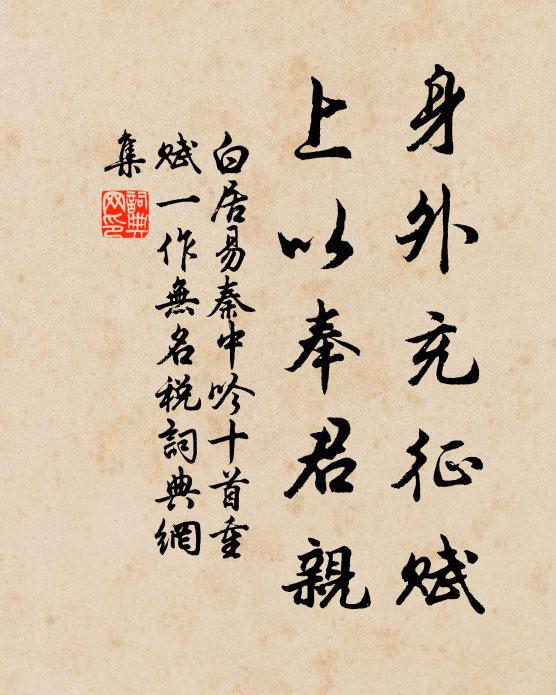 身外充征赋
上以奉君親
白居易秦中吟十首重
赋一作無名税詞典網
集
詞典
网印